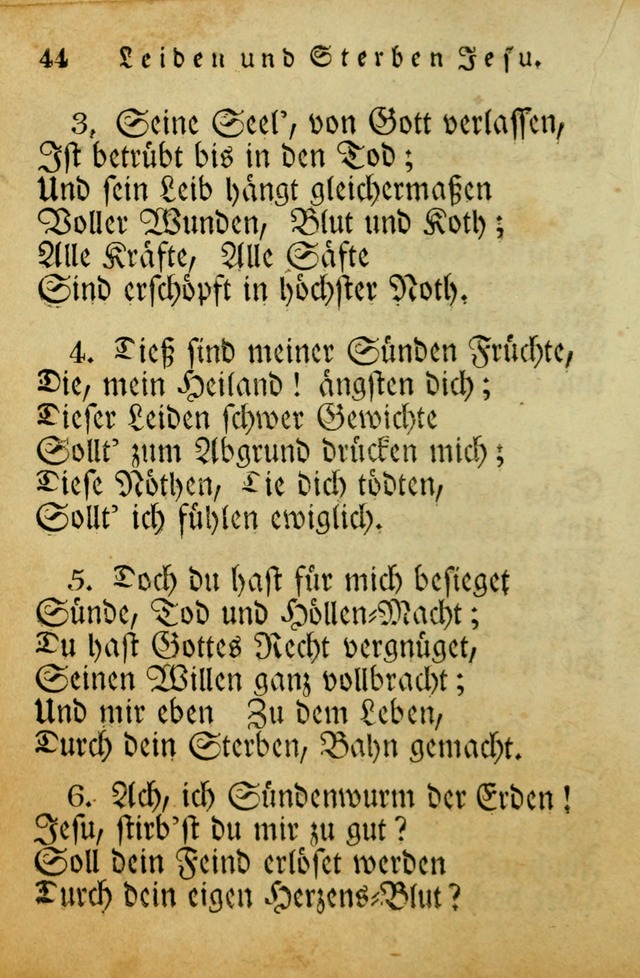 44 Leiden und Sterben Jesu.
3. Seine Seel’, von Gott verlassen,
Ist betrübt bis in den Tod;
Und sein Leib hängt gleichermaßen
Voller Wunden, Blut und Koth;
Alle Kräfte, Alle Säfte
Sind erschöpft in höchster Noth.
4. Dieß sind meiner Sünden Früchte,
Die, mein Heiland! ängsten dich;
Dieser Leiden schwer Gewichte
Sollt’ zum Abgrund drücken mich;
Diese Nöthen, Die dich tödten,
Sollt’ ich fühlen ewiglich.
5. Doch du hast für mich besieget
Sünde, Tod und Höllen-Macht;
Du hast Gottes Recht vergnüget,
Seinen Willen ganz vollbracht;
Und mir eben Zu dem Leben,
Durch dein Sterben, Bahn gemacht.
6. Ach, ich Sündenwurm der Erden!
Jesu, stirb’st du mir zu gut?
Soll dein Feind erlöset werden
Durch dein eigen Herzens-Blut?